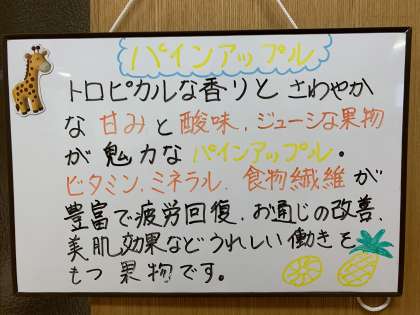 パインアップル
トロピカルな香りと さわやか
な 甘みと 酸味、ジューシな果物
が 魅力な パインアップル。
ビタミン、ミネラル、食物繊維が
豊富で疲労回復、お通じの改善、
美肌効果など うれしい 働きを
もつ 果物です。